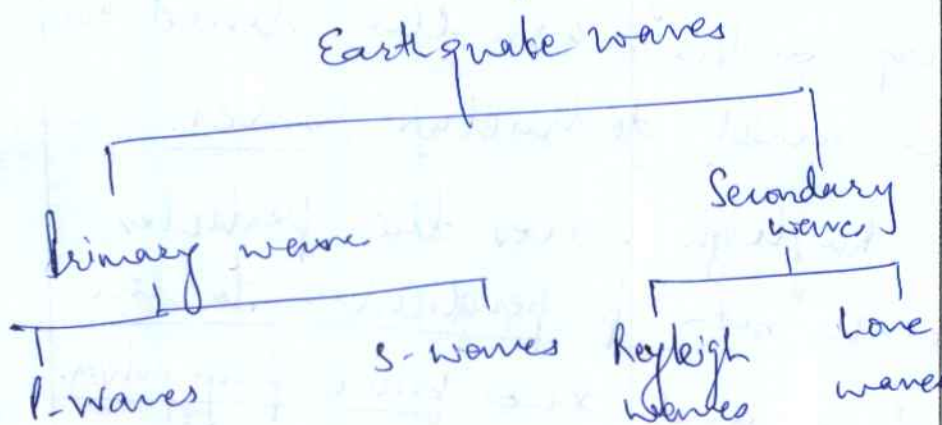 Earthquake waves
Primary wave
Secondary
waves
P-waves
S-waves
Rayleigh
waves
Love
waves